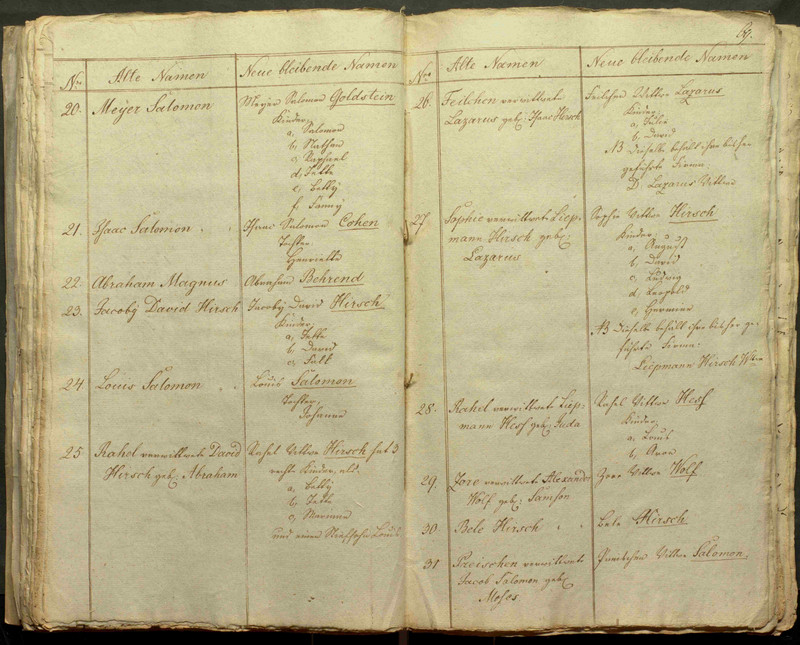 Nro Alte Namen Neue bleibende Namen
20. Meyer Salomon Meyer Salomon Goldstein
Kinder,
a, Salomon
b, Nathan
c, Raphael
d, Jette
e, Betty
f, Fanny
21. Isaac Salomon Isaac Salomon Cohen
Tochter
Henriette
22. Abraham Magnus Abraham Behrend
23. Jacoby David Hirsch Jacoby David Hirsch
Kinder,
a, Jette
b, David
c,
24 Louis Salomon Louis Salomon
Tochter,
Johanne
25 Rahel verwittwete David Rahel Wittwe Hirsch hat 3
Hirsch geb. Abraham rechte Kinder, als.
a, Betty
b, Jette
c,
und einen Stiefsohn Louis
69.
Nro Alte Namen Neue bleibende Namen
26. Feilchen verwittwete Feilchen Wittwe Lazarus
Lazarus geb. Isaac Hirsch Kinder
a, Julie
b, David
NB Dieselbe behält ihre bisher
geführte Firma:
D. Lazarus Wittwe
27. Sophie verwittwete Liep- Sophie Wittwe Hirsch
mann Hirsch geb. Kinder,
Lazarus a, August
b, David
c, Ludwig
d, Leopold
e, Herrman
NB Dieselbe behält ihre bisher ge-
führte Firma:
Liepmann Hirsch Wwe
28. Rahel verwittwete Liep- Rahel Wittwe Hess
mann Hess geb. Juda Kinder,
a, Louis
b,
29. Zore verwittwete Alexander Zore Wittwe Wolf
Wolf geb. Samson
30. Bele Hirsch Bele Hirsch
31 Preischen verwittwete Wittwe Salomon.
Jacob Salomon geb.
Moses.